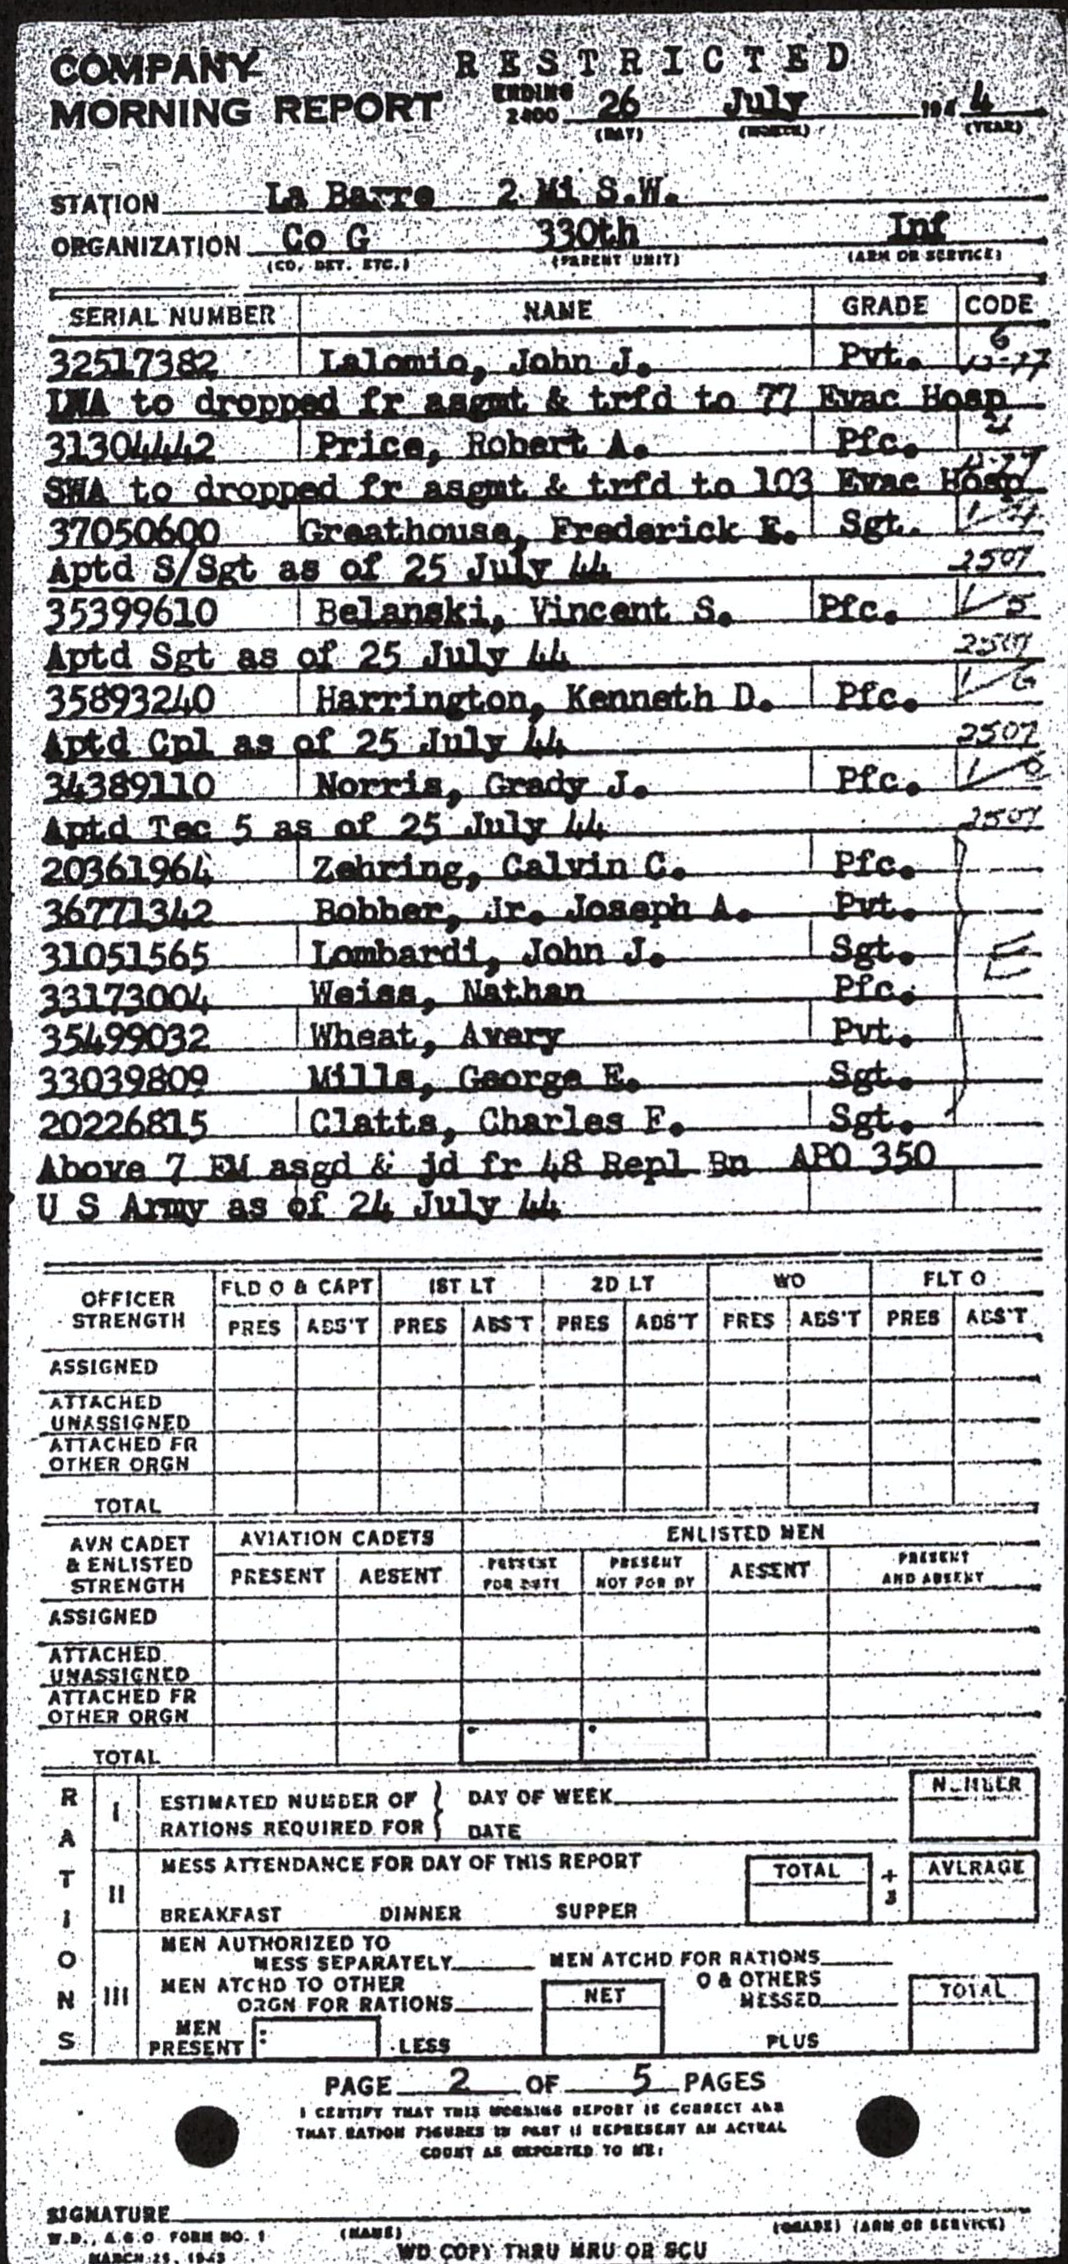 COMPANY RESTRICTED
MORNING REPORT ENDING 2400 26 July 1944
(DAY) (MONTH) (YEAR)
STATION La Barre 2 Mi S.W.
ORGANIZATION Co G 330th Inf
(CO, DET. ETC.) (PARENT UNIT) (ARM OR SERVICE)
SERIAL NUMBER NAME GRADE CODE
32517382 Lalomio, John J. Pvt. 6
LWA to dropped fr asgmt & trfd to 77 Evac Hosp
31304442 Price, Robert A. Pfc. 4
SWA to dropped fr asgmt & trfd to 103 Evac Hosp
37050600 Greathouse, Frederick E. Sgt. 1/4
Aptd S/Sgt as of 25 July 44 2507
35399610 Belanski, Vincent S. Pfc. 1/5
Aptd Sgt as of 25 July 44 2507
35893240 Harrington, Kenneth D. Pfc. 1/6
Aptd Cpl as of 25 July 44 2507
34389110 Norris, Grady J. Pfc.
Aptd Tec 5 as of 25 July 44 2507
20361964 Zehring, Calvin C. Pfc.
36771342 Bobber, Jr. Joseph A. Pvt.
31051565 Lombardi, John J. Sgt. E
33173004 Weiss, Nathan Pfc.
35499032 Wheat, Avery Pvt.
33039809 Mills, George E. Sgt.
20226815 Clatts, Charles F. Sgt.
Above 7 EM asgd & jd fr 48 Repl Bn APO 350
U S Army as of 24 July 44
OFFICER STRENGTH FLD O & CAPT 1ST LT 2D LT WO FLT O
PRES ABS'T PRES ABS'T PRES ABS'T PRES ABS'T PRES ABS'T
ASSIGNED
ATTACHED
UNASSIGNED
ATTACHED FR
OTHER ORGN
TOTAL
AVN CADET & ENLISTED STRENGTH AVIATION CADETS ENLISTED MEN
PRESENT ABSENT PRESENT FOR DUTY PRESENT NOT FOR DY ABSENT PRESENT AND ABSENT
ASSIGNED
ATTACHED
UNASSIGNED
ATTACHED FR
OTHER ORGN
TOTAL
RATIONS
I ESTIMATED NUMBER OF DAY OF WEEK NUMBER
RATIONS REQUIRED FOR DATE
II MESS ATTENDANCE FOR DAY OF THIS REPORT TOTAL ÷ 3 AVERAGE
BREAKFAST DINNER SUPPER
III MEN AUTHORIZED TO
MESS SEPARATELY MEN ATCHD FOR RATIONS
MEN ATCHD TO OTHER O & OTHERS
ORGN FOR RATIONS NET MESSED TOTAL
MEN
PRESENT LESS PLUS
PAGE 2 OF 5 PAGES
I CERTIFY THAT THIS MORNING REPORT IS CORRECT AND
THAT RATION FIGURES IN PART II REPRESENT AN ACTUAL
COUNT AS REPORTED TO ME:
SIGNATURE
W.D., A.G.O. FORM NO. 1 (NAME) (GRADE) (ARM OR SERVICE)
MARCH 25, 1943 WD COPY THRU MRU OR SCU